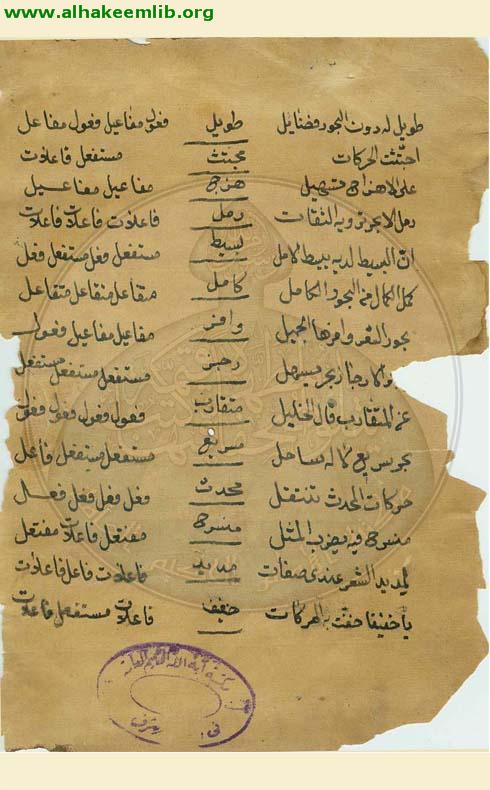 www.alhakeemlib.org
طويل له دون البحور فضايل طويل فعول مفاعيل فعول مفاعل
اجتثت الحركات مجتث مستفعل فاعلات
على الاهزاج تسهيل هزج مفاعيل مفاعيل
رمل الابحر ترويه الثقات رمل فاعلات فاعلات فاعلات
ان البسيط لديه يبسط الامل بسيط مستفعل فعل مستفعل فعل
كمل الكمال من البحور الكامل كامل متفاعل متفاعل متفاعل
بحور الشعر وافرها الجميل وافر مفاعيل مفاعيل فعول
بحر يسهل رجز مستفعل مستفعل مستفعل
عن المتقارب قال الخليل متقارب فعول فعول فعول فعول
بحر سريع ماله ساحل سريع مستفعل مستفعل فاعل
حركات المحدث تنتقل محدث فعل فعل فعل فعل
منسرح فيه يضرب المثل منسرح مفتعل فاعلات مفتعل
لمديد الشعر عندي صفات مديد فاعلات فاعل فاعلات
يا خفيفا خفت به الحركات خفيف فاعلات مستفعل فاعلات
مكتبة آية الله الحكيم العامة
في